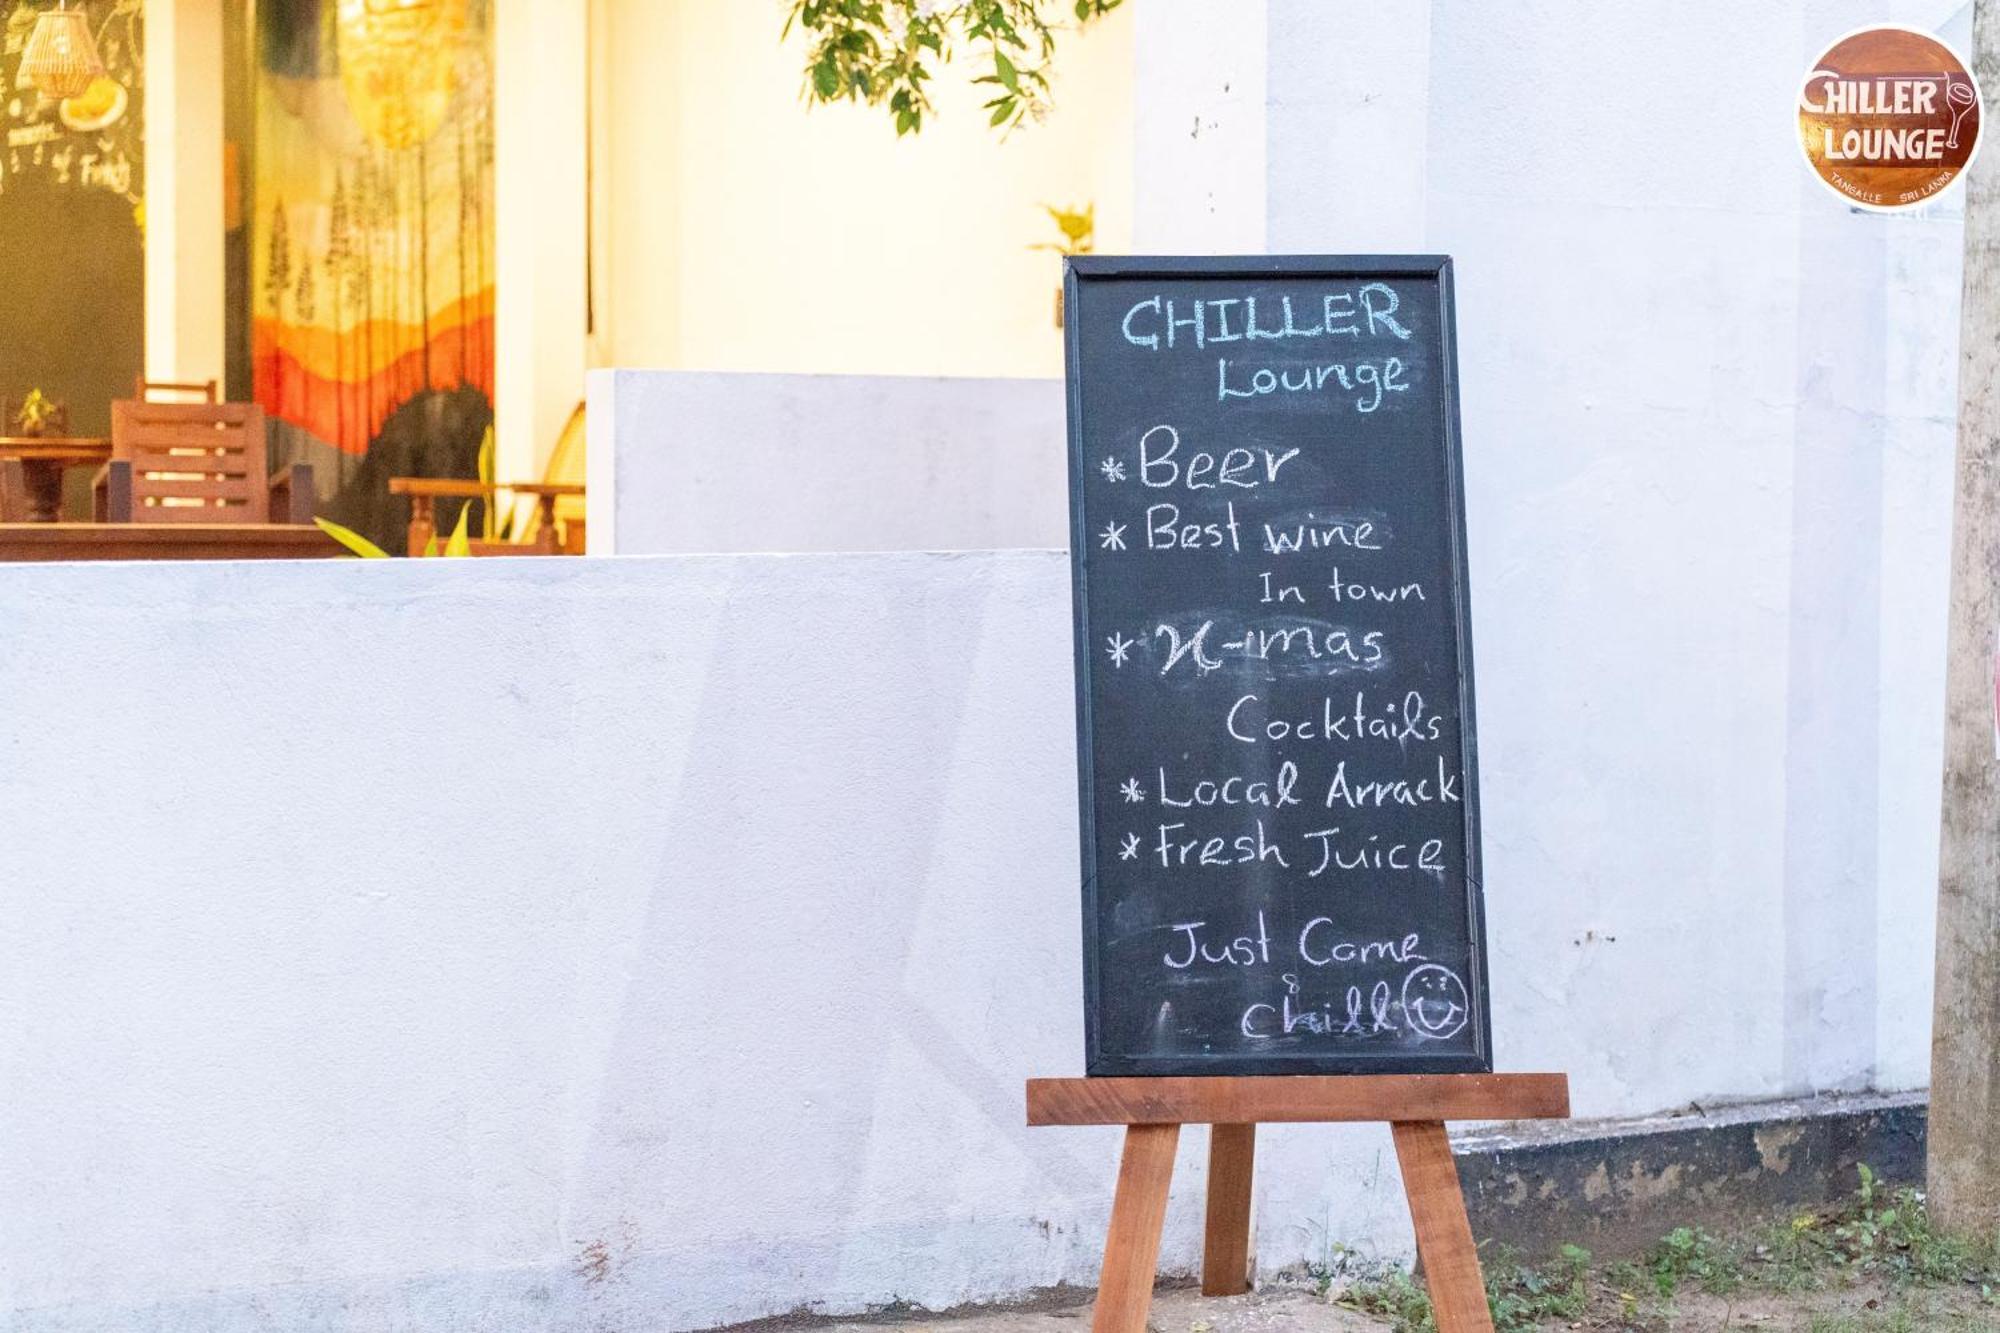 CHILLER
LOUNGE
TANGALLE SRI LANKA
CHILLER
Lounge
* Beer
* Best wine
In town
* X-mas
Cocktails
* Local Arrack
* Fresh Juice
Just Come
&
chill